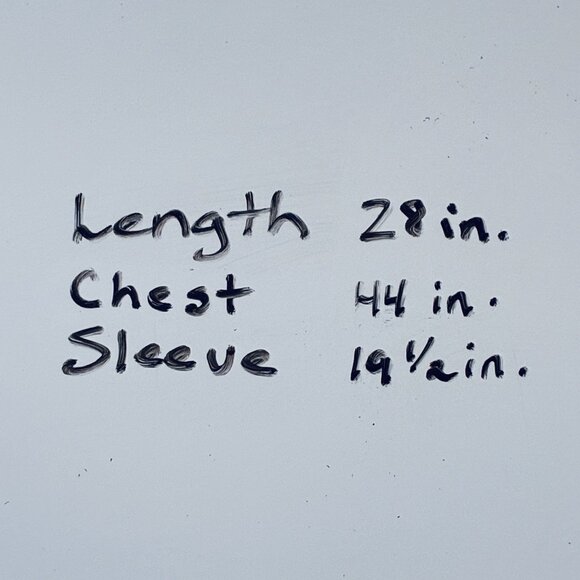 Length 28 in.
Chest 44 in.
Sleeve 19 1/2 in.